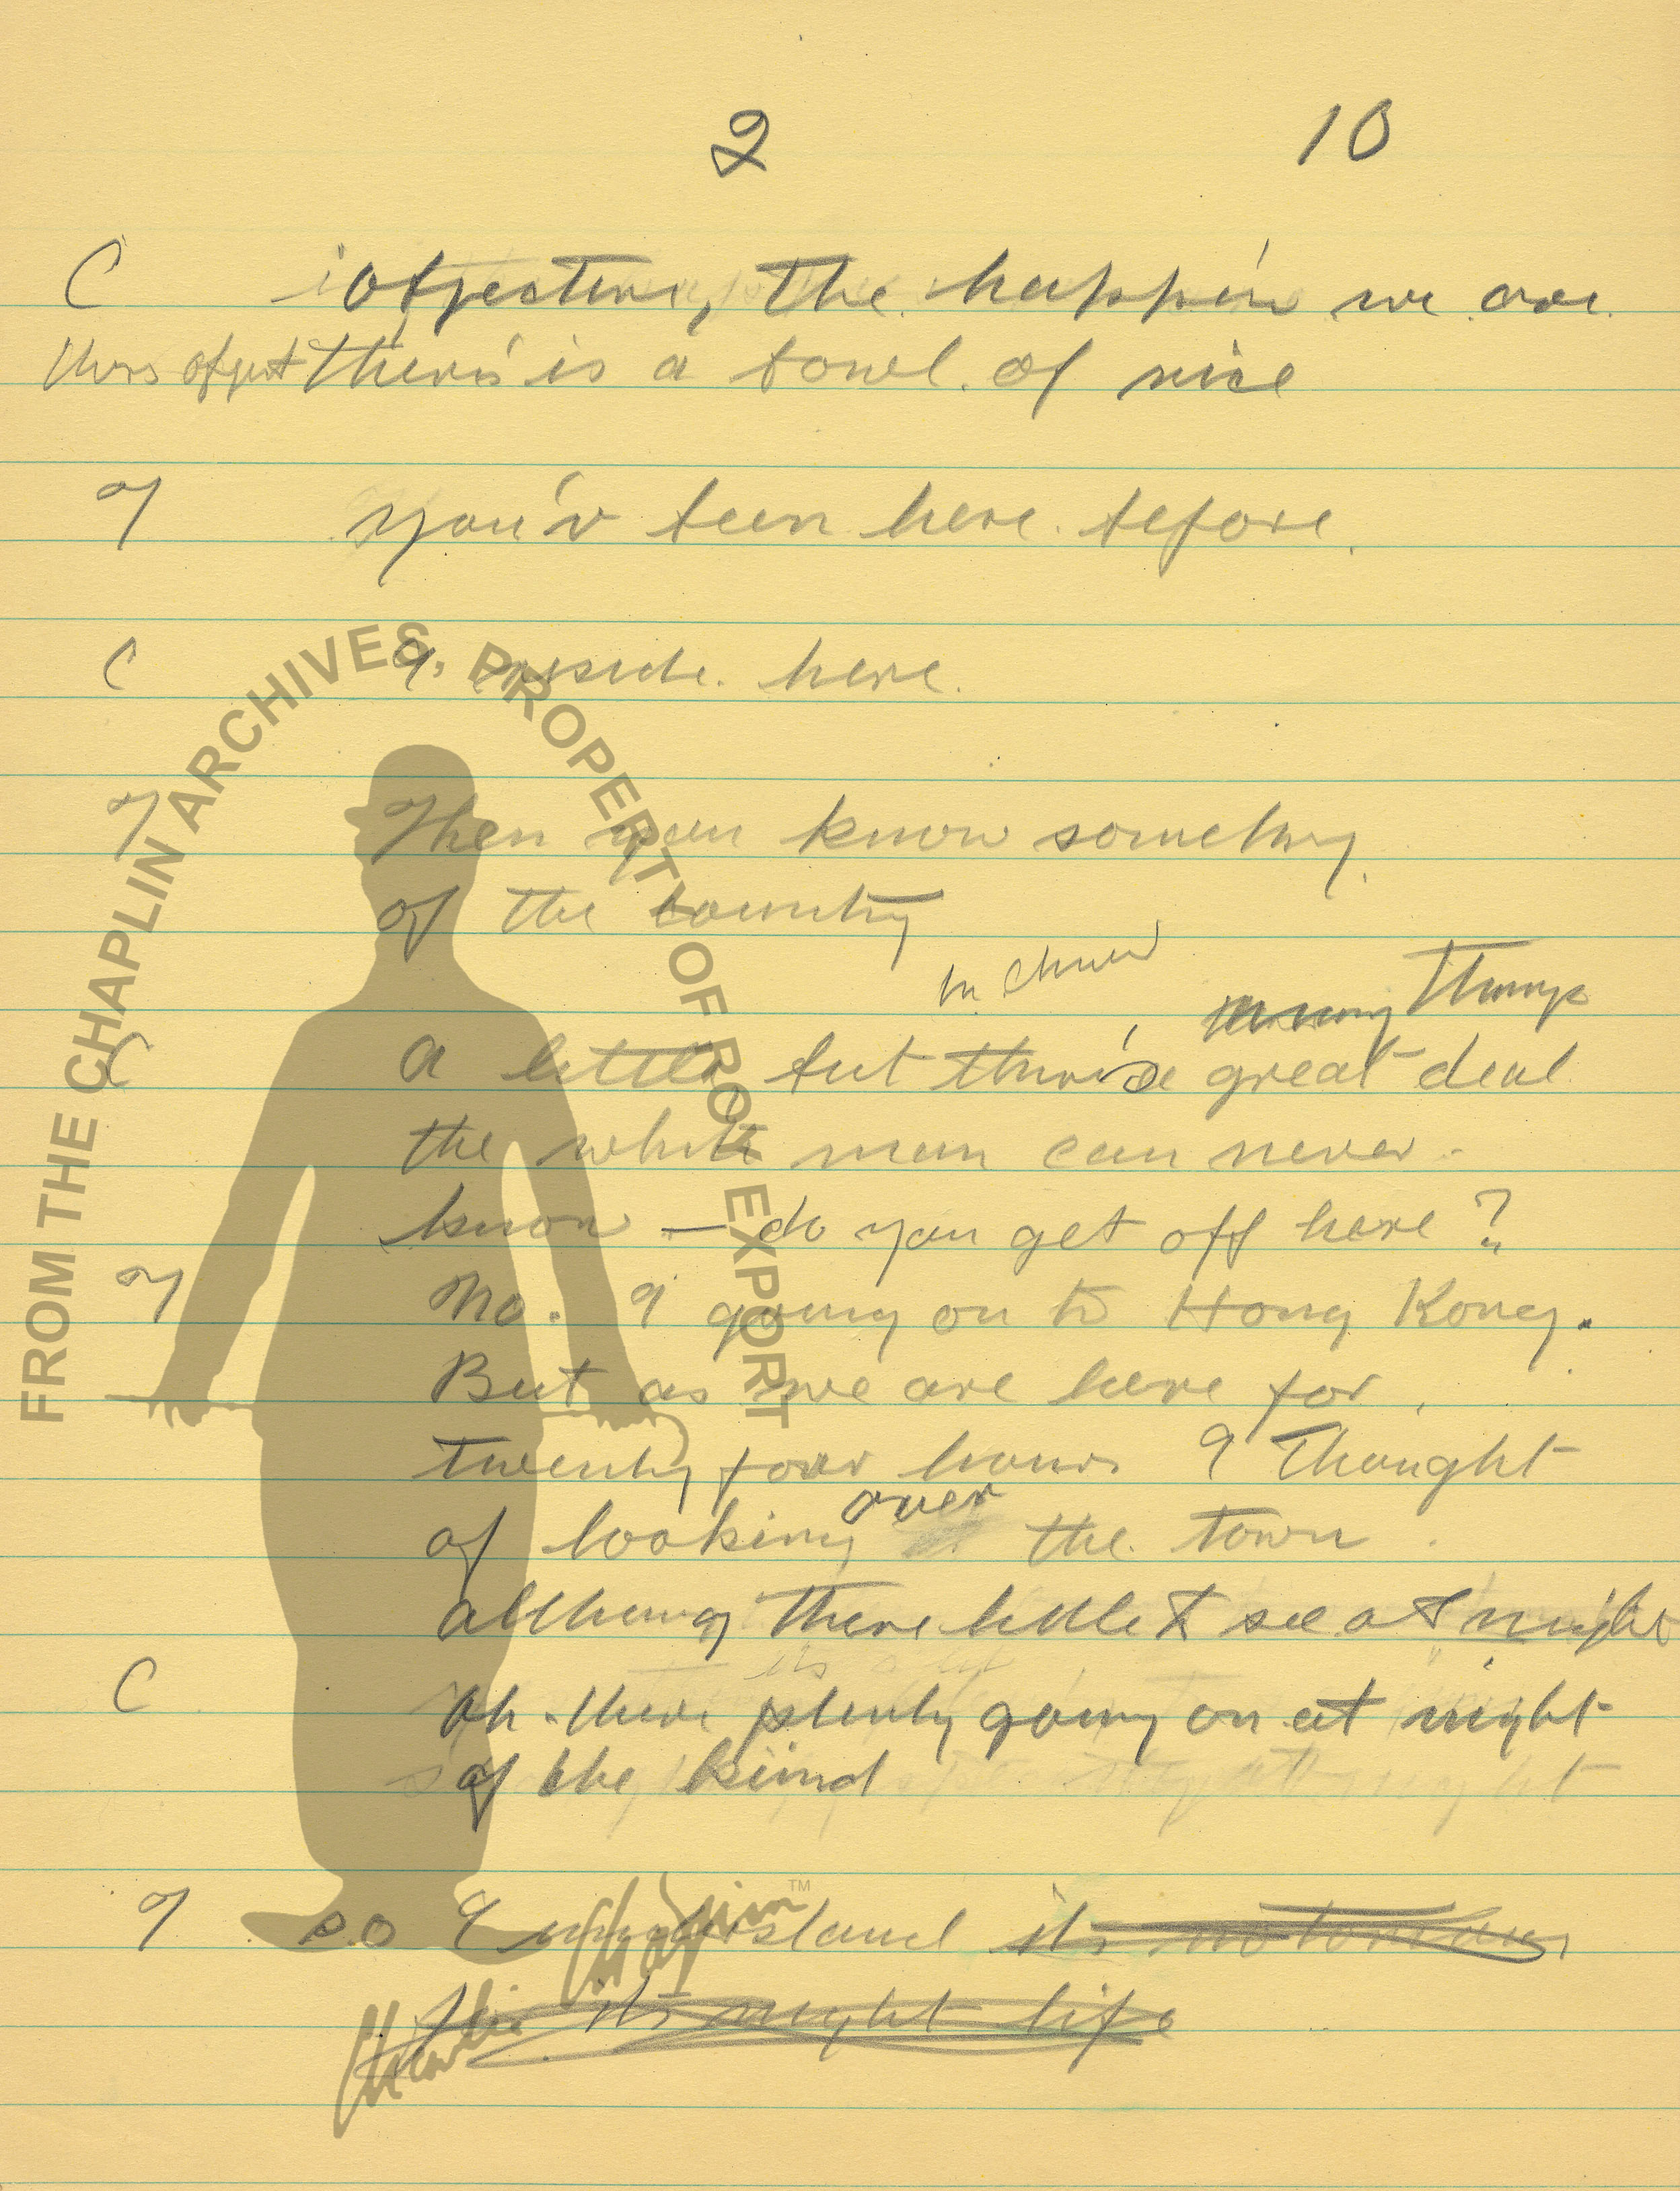 2 10
C objective, the happier we are
theirs is a bowl of rice
T you'v been here before.
C I reside here.
T Then you know something
of the country
in China
many things
C A little but there's a great deal
the white man can never
know — do you get off here?
T No. I going on to Hong Kong.
But as we are here for
twenty four hours I thought
of looking over the town
although there little to see at night
C Oh. there plenty going on at night
of the kind
T so I understand its notorious
for its night life
FROM THE CHAPLIN ARCHIVES, PROPERTY OF ROY EXPORT
Charlie Chaplin™